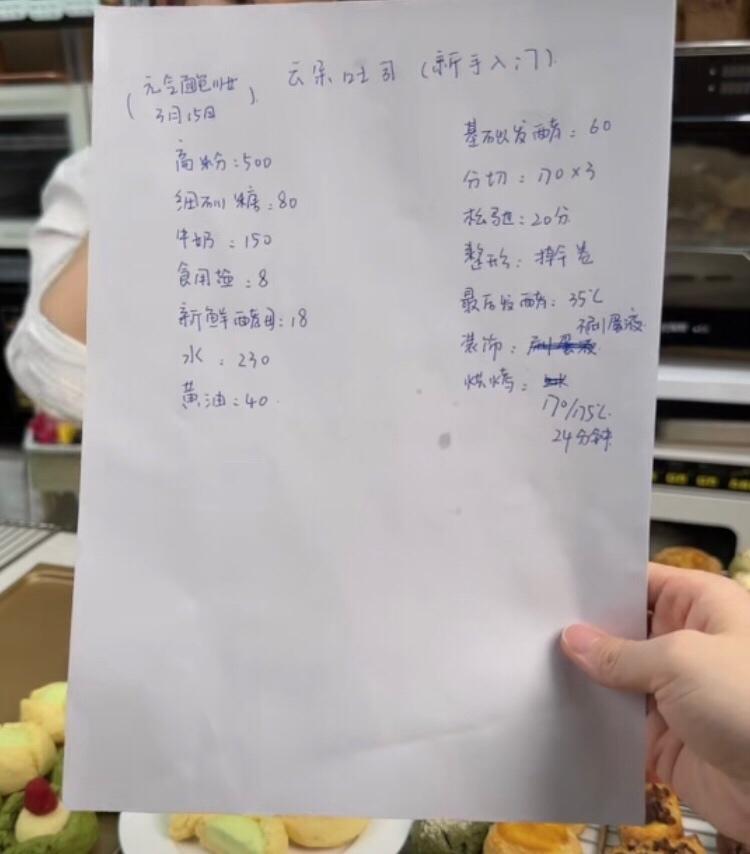 云朵吐司 (新手入门)
3月15日
高粉:500
细砂糖:80
牛奶:150
食用盐:8
新鲜酵母:18
水:230
黄油:40
基础发酵:60
分切:170×3
松弛:20分
整形:擀卷
最后发酵:35℃
装饰:不刷蛋液
烘烤:
170/175℃
24分钟